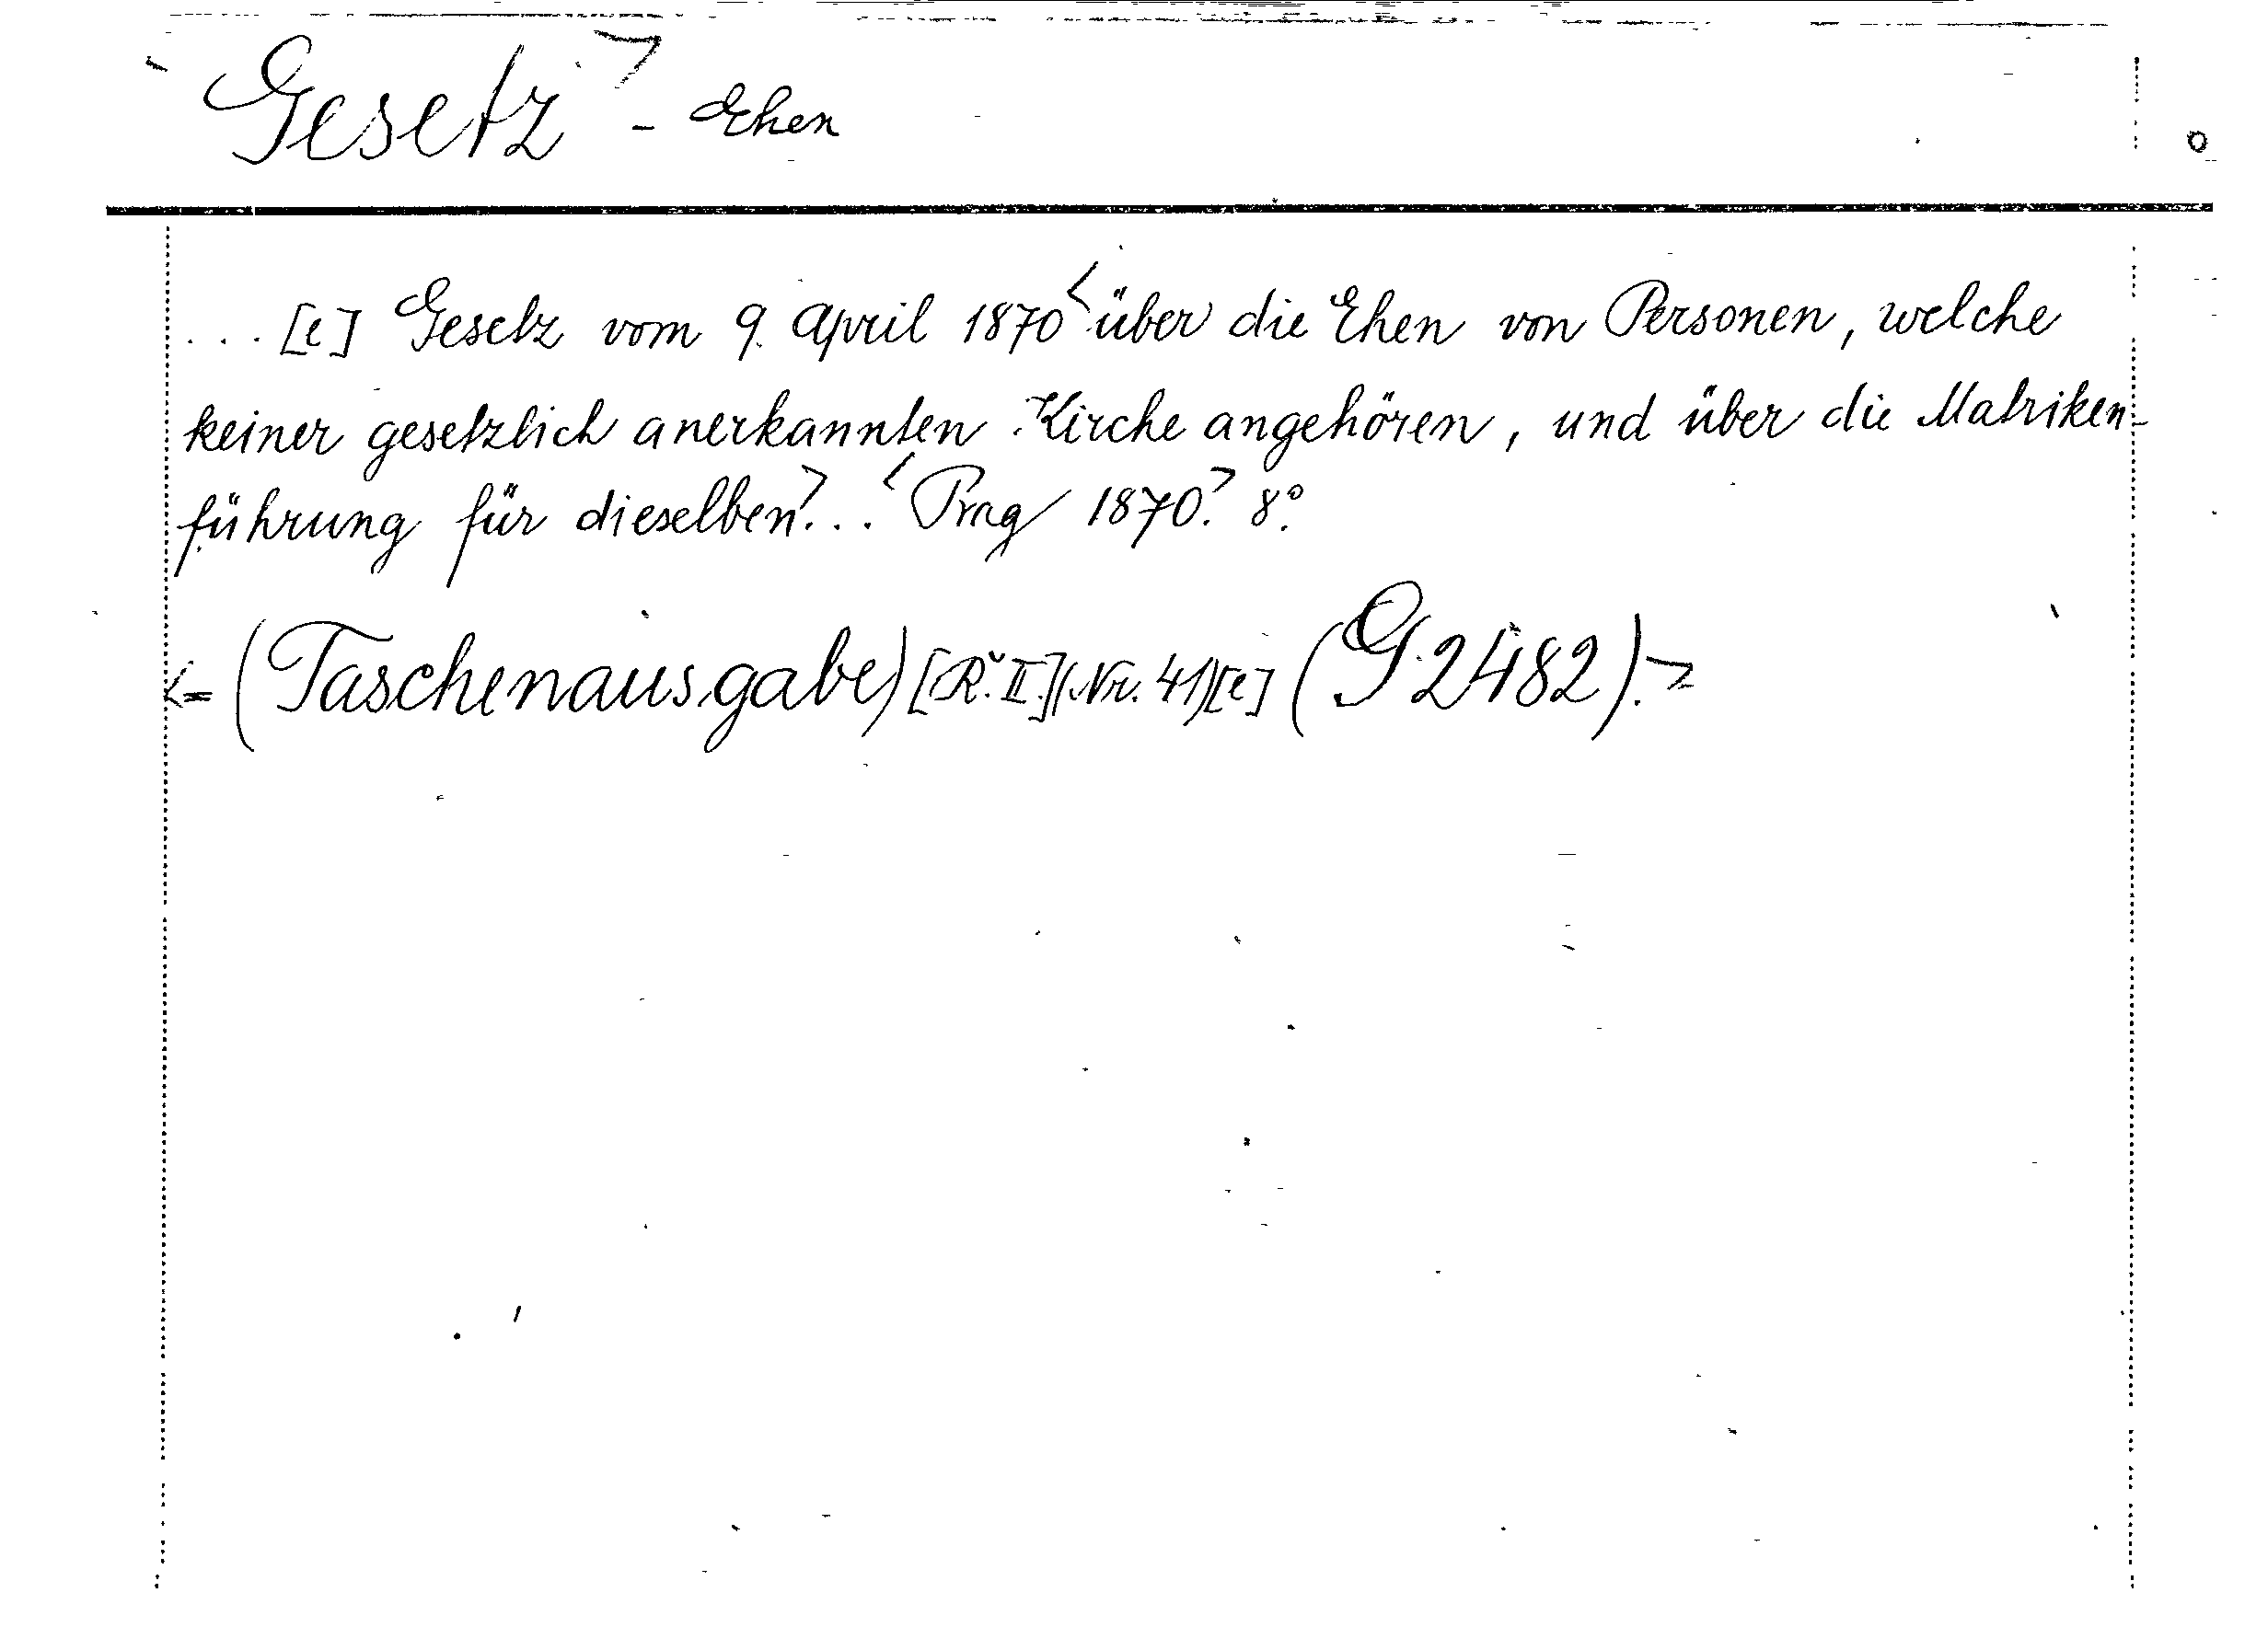 Gesetz> - Ehen
... [e] Gesetz vom 9. April 1870 <über die Ehen von Personen, welche
keiner gesetzlich anerkannten Kirche angehören, und über die Matriken-
führung für dieselben>... <Prag 1870.> 8°.
<= (Taschenausgabe) [Ř. II.] (Nr. 41) [e] (G 2482).>